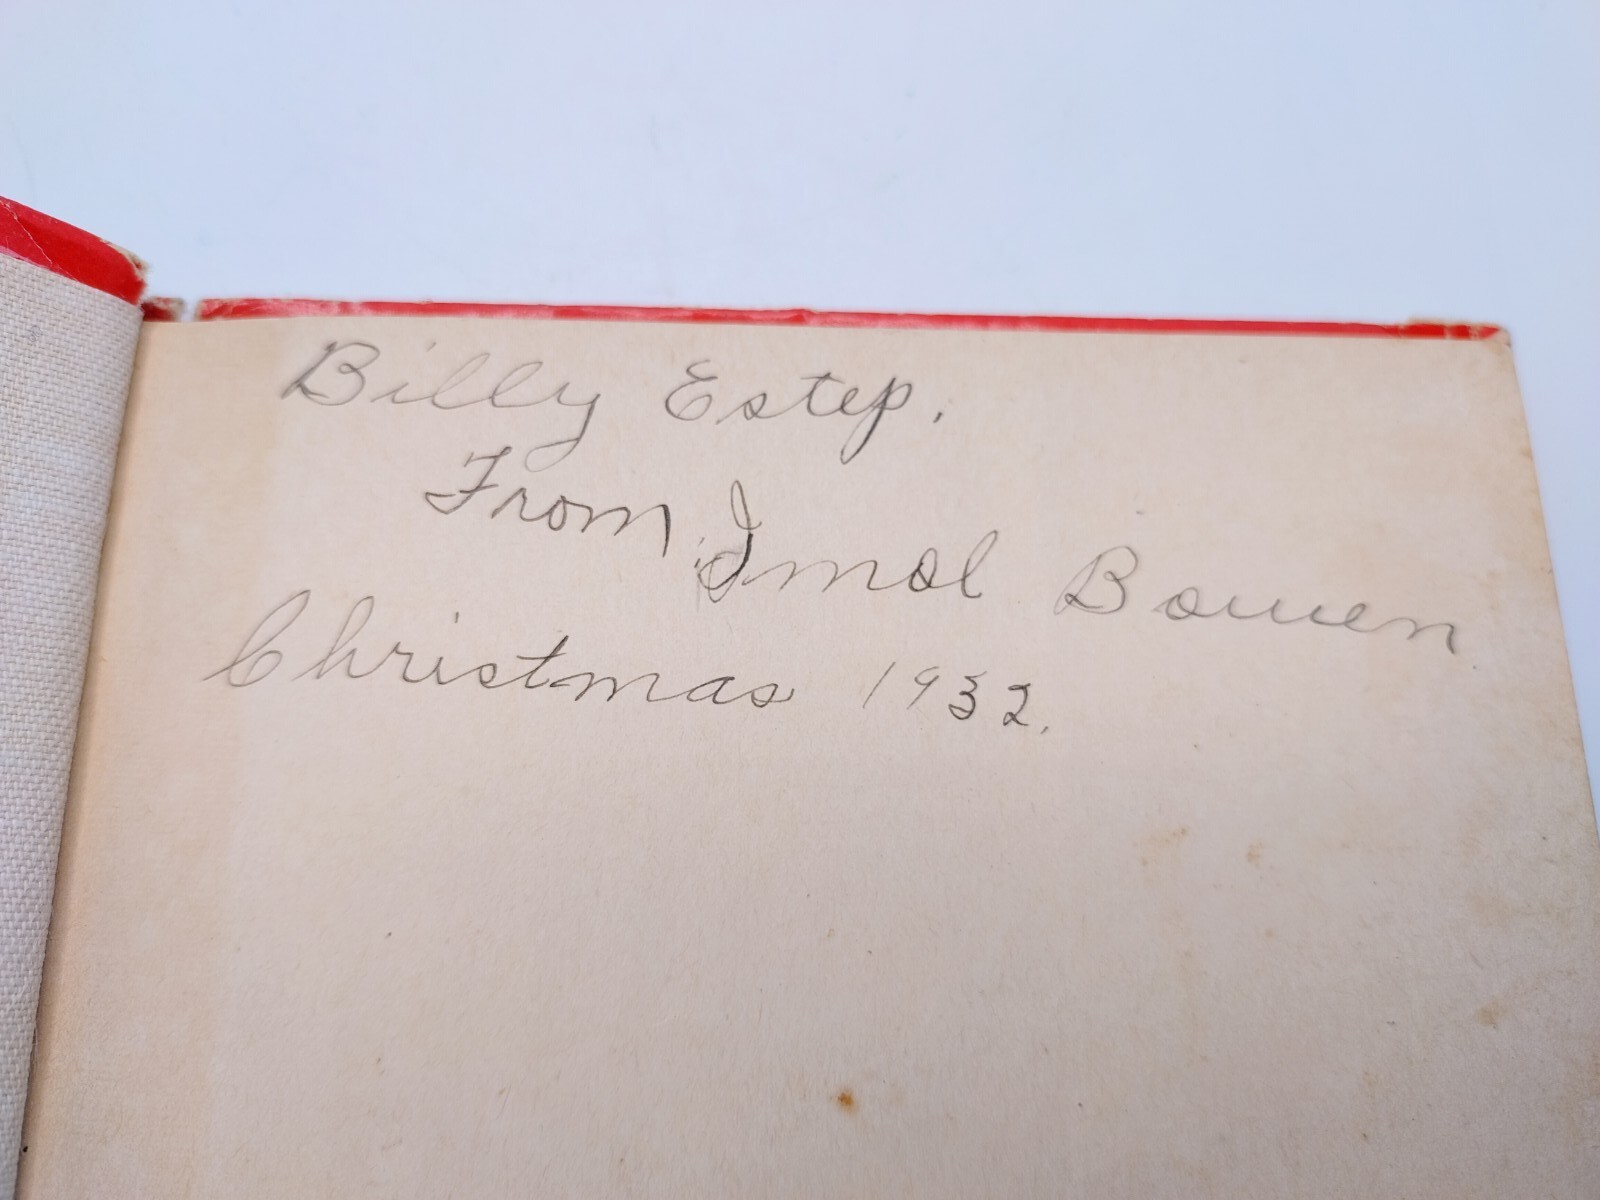 Billy Estep.
From Imol Bowen
Christmas 1932.